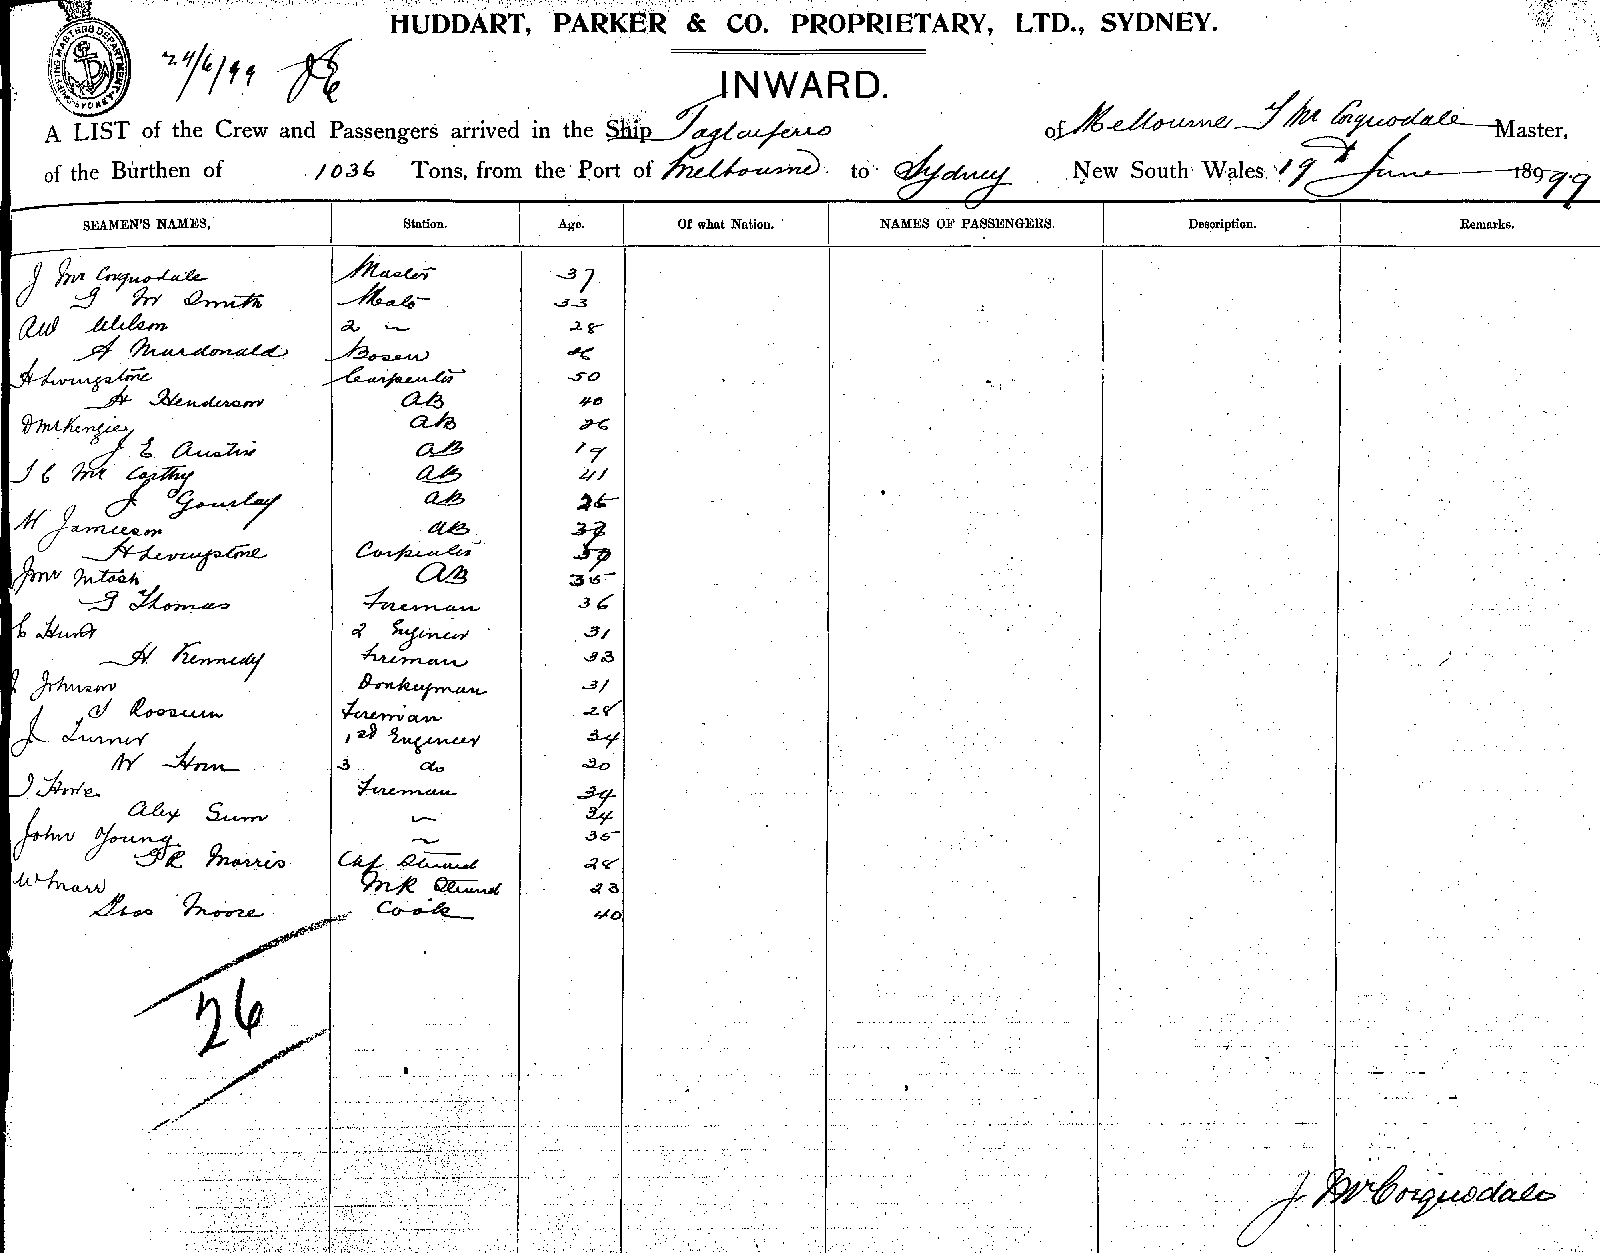 HUDDART, PARKER & CO. PROPRIETARY, LTD., SYDNEY.
24/6/99
INWARD.
A LIST of the Crew and Passengers arrived in the Ship Taglaiferro of Melbourne J Mc Corquodale Master,
of the Burthen of 1036 Tons, from the Port of Melbourne to Sydney New South Wales 19th June 18999
SEAMEN'S NAMES, Station. Age. Of what Nation. NAMES OF PASSENGERS. Description. Remarks.
J Mc Corquodale Master 37
G M Smith Mate 33
AW Wilson 2 " 28
A Macdonald Bosen 26
H Livingstone Carpenter 50
H Henderson AB 40
D McKenzie AB 26
J E Austin AB 19
J C Mc Carthy AB 41
J Gourlay AB 25
M Jamieson AB
H Livingstone Carpenter
J Mc Intosh AB 35
G Thomas Fireman 36
E Hunt 2 Engineer 31
H Kennedy Fireman 33
J Johnson Donkeyman 31
J Rossum Fireman 28
J Turner 1st Engineer 34
W Horn 3 do 30
J Howe Fireman 34
Alex Gum " 34
John Young " 35
G R Morris Chf Steward 28
W Marr Steward 23
Moore Cook 40
26
J McCorquodale